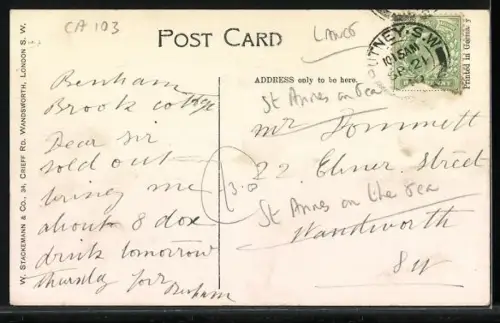 CA 103
POST CARD
LANCS
PUTNEY. S.W
10 15 AM
SP 21
Printed in Saxony
ADDRESS only to be here.
St Annes on Sea
Mr Dommett
22 Elmer Street
St Annes on the sea
Wandsworth
SW
3.0
Benham
Brook cottage
Dear Sir
sold out
bring me
about 8 doz
drink tomorrow
thursday for
Benham
W. STACKEMANN & CO., 34, CRIEFF RD. WANDSWORTH, LONDON S. W.